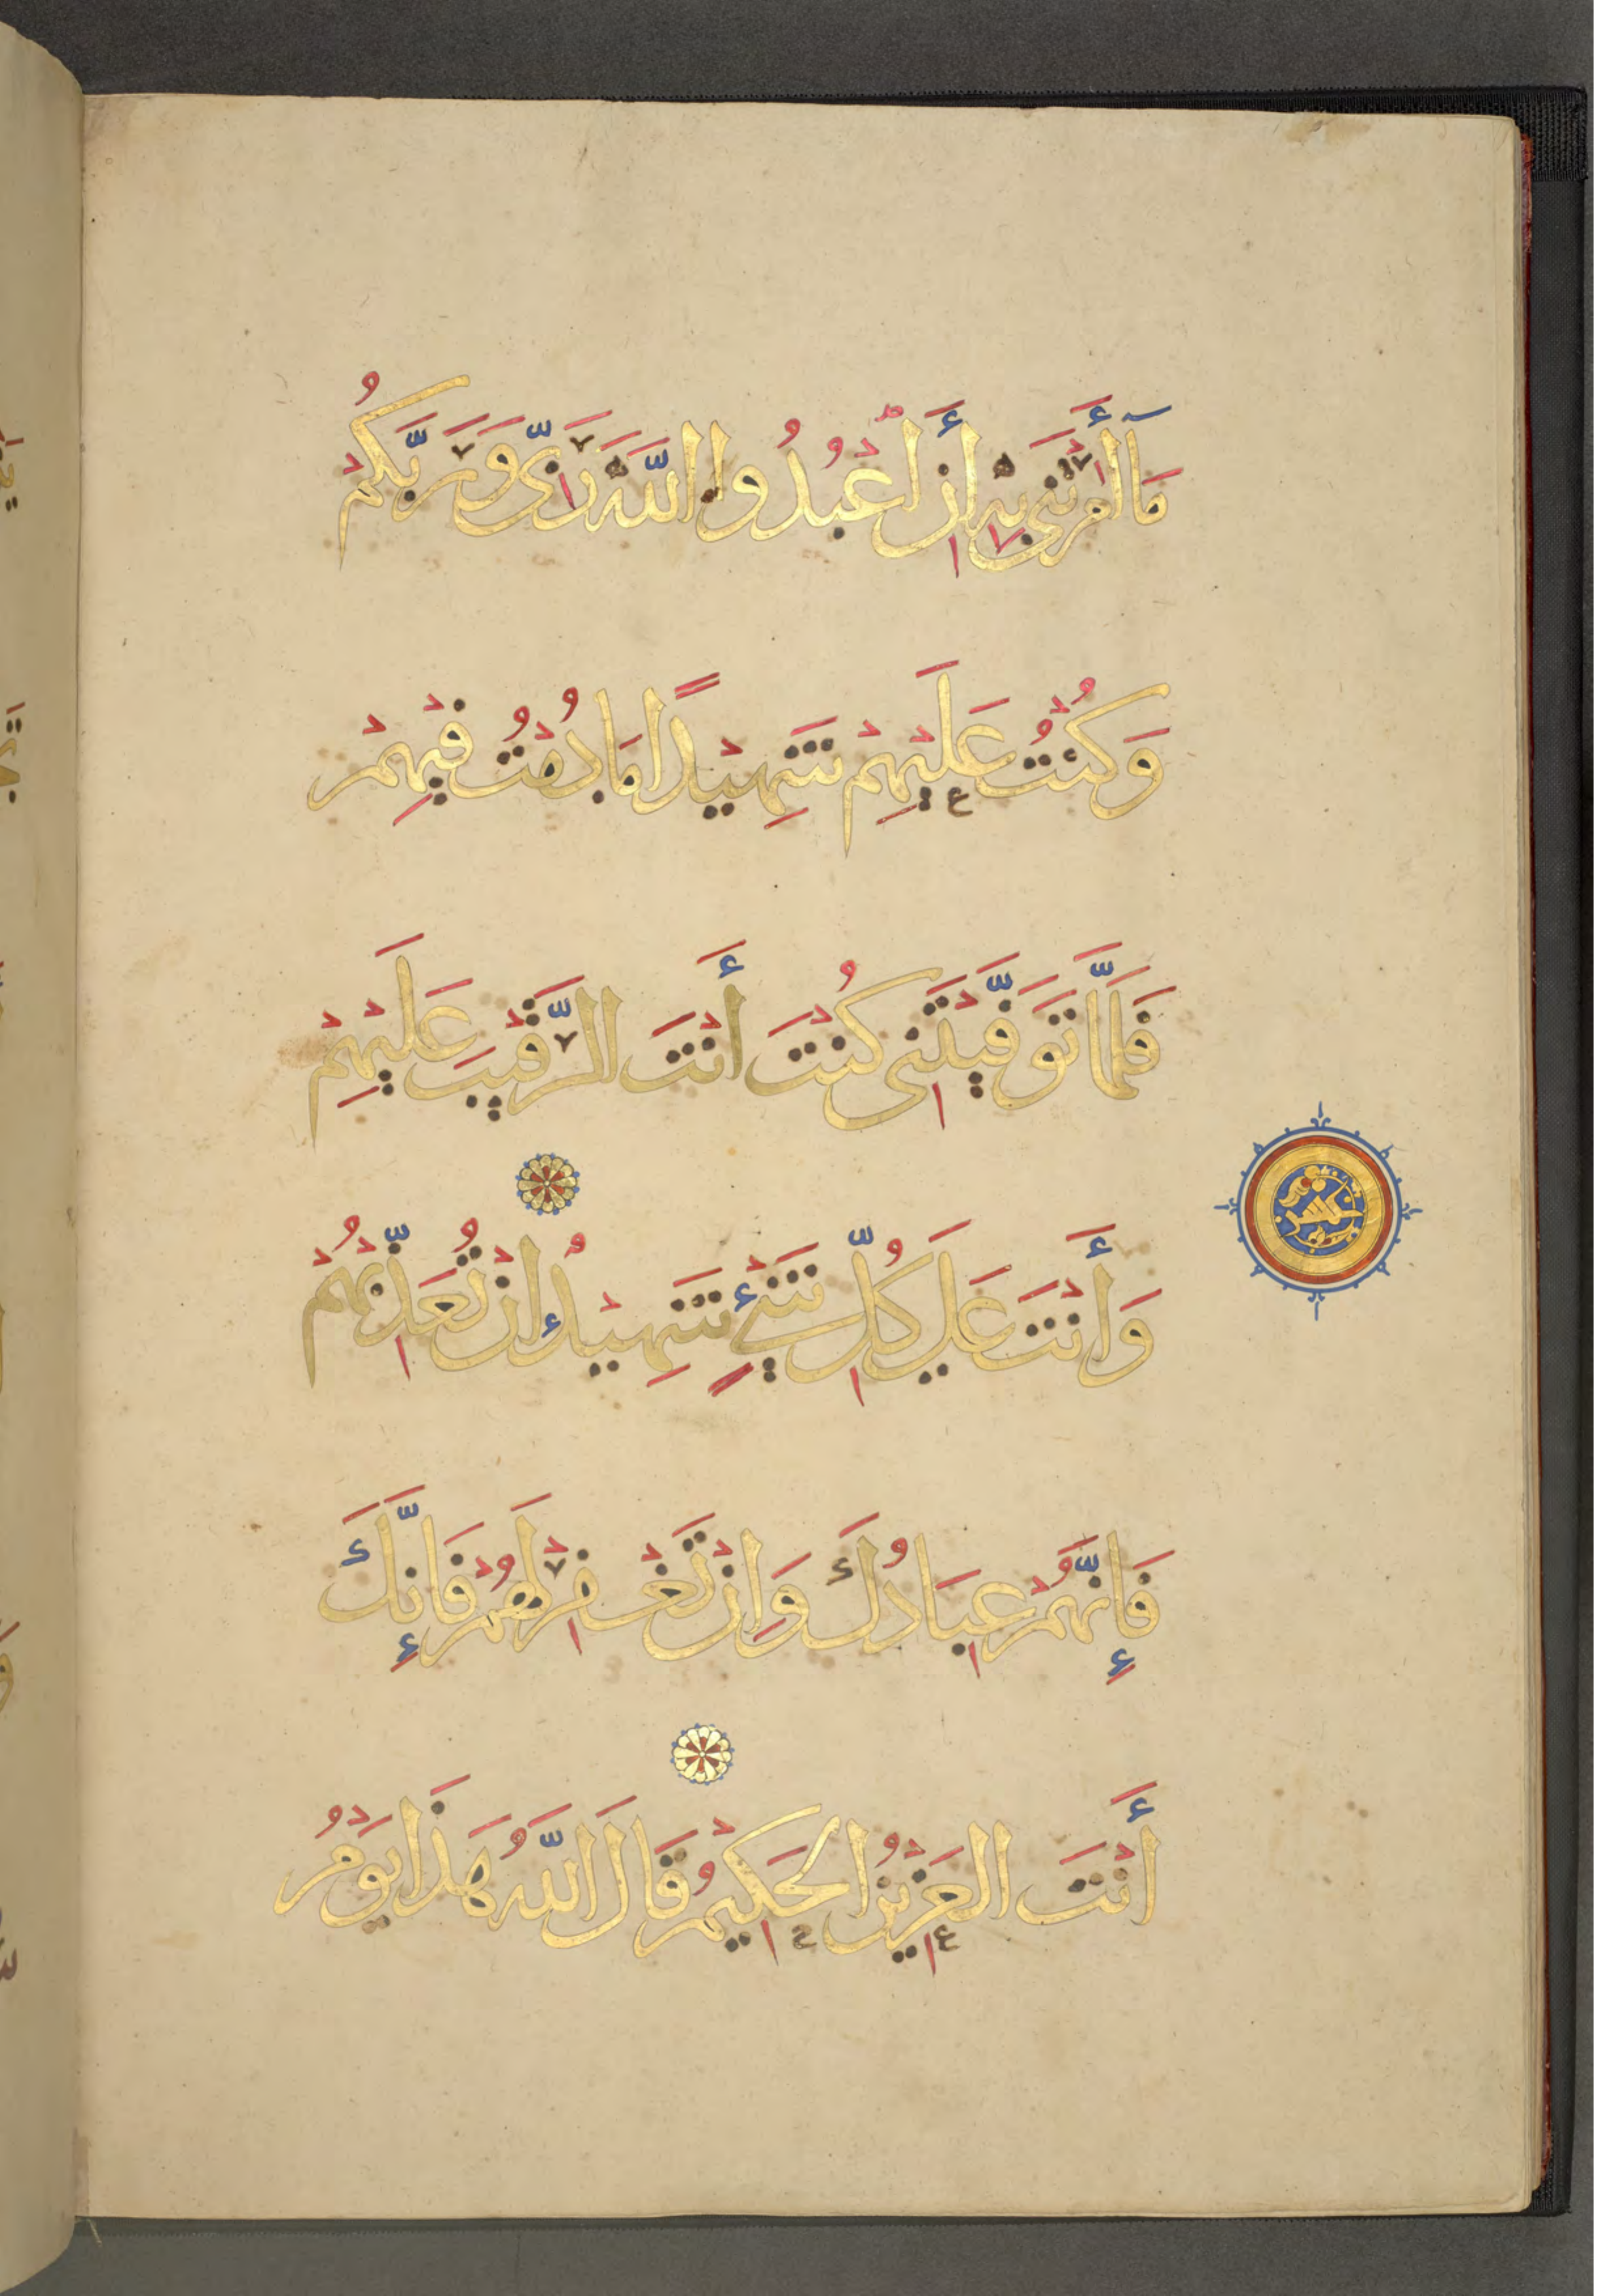 مَآ أَمَرْتَنِى بِهِ أَنْ اعْبُدُوا اللَّهَ رَبِّى وَرَبَّكُمْ
وَكُنْتُ عَلَيْهِمْ شَهِيْدًا مَا دُمْتُ فِيْهِمْ
فَلَمَّا تَوَفَّيْتَنِى كُنْتَ أَنْتَ الرَّقِيْبَ عَلَيْهِمْ
وَأَنْتَ عَلَى كُلِّ شَىْءٍ شَهِيْدٌ إنْ تُعَذِّبْهُمْ
فَإِنَّهُمْ عِبَادُكَ وَإِنْ تَغْفِرْ لَهُمْ فَإِنَّكَ
أَنْتَ الْعَزِيْزُ الْحَكِيْمُ قَالَ اللَّهُ هَذَا يَوْمُ